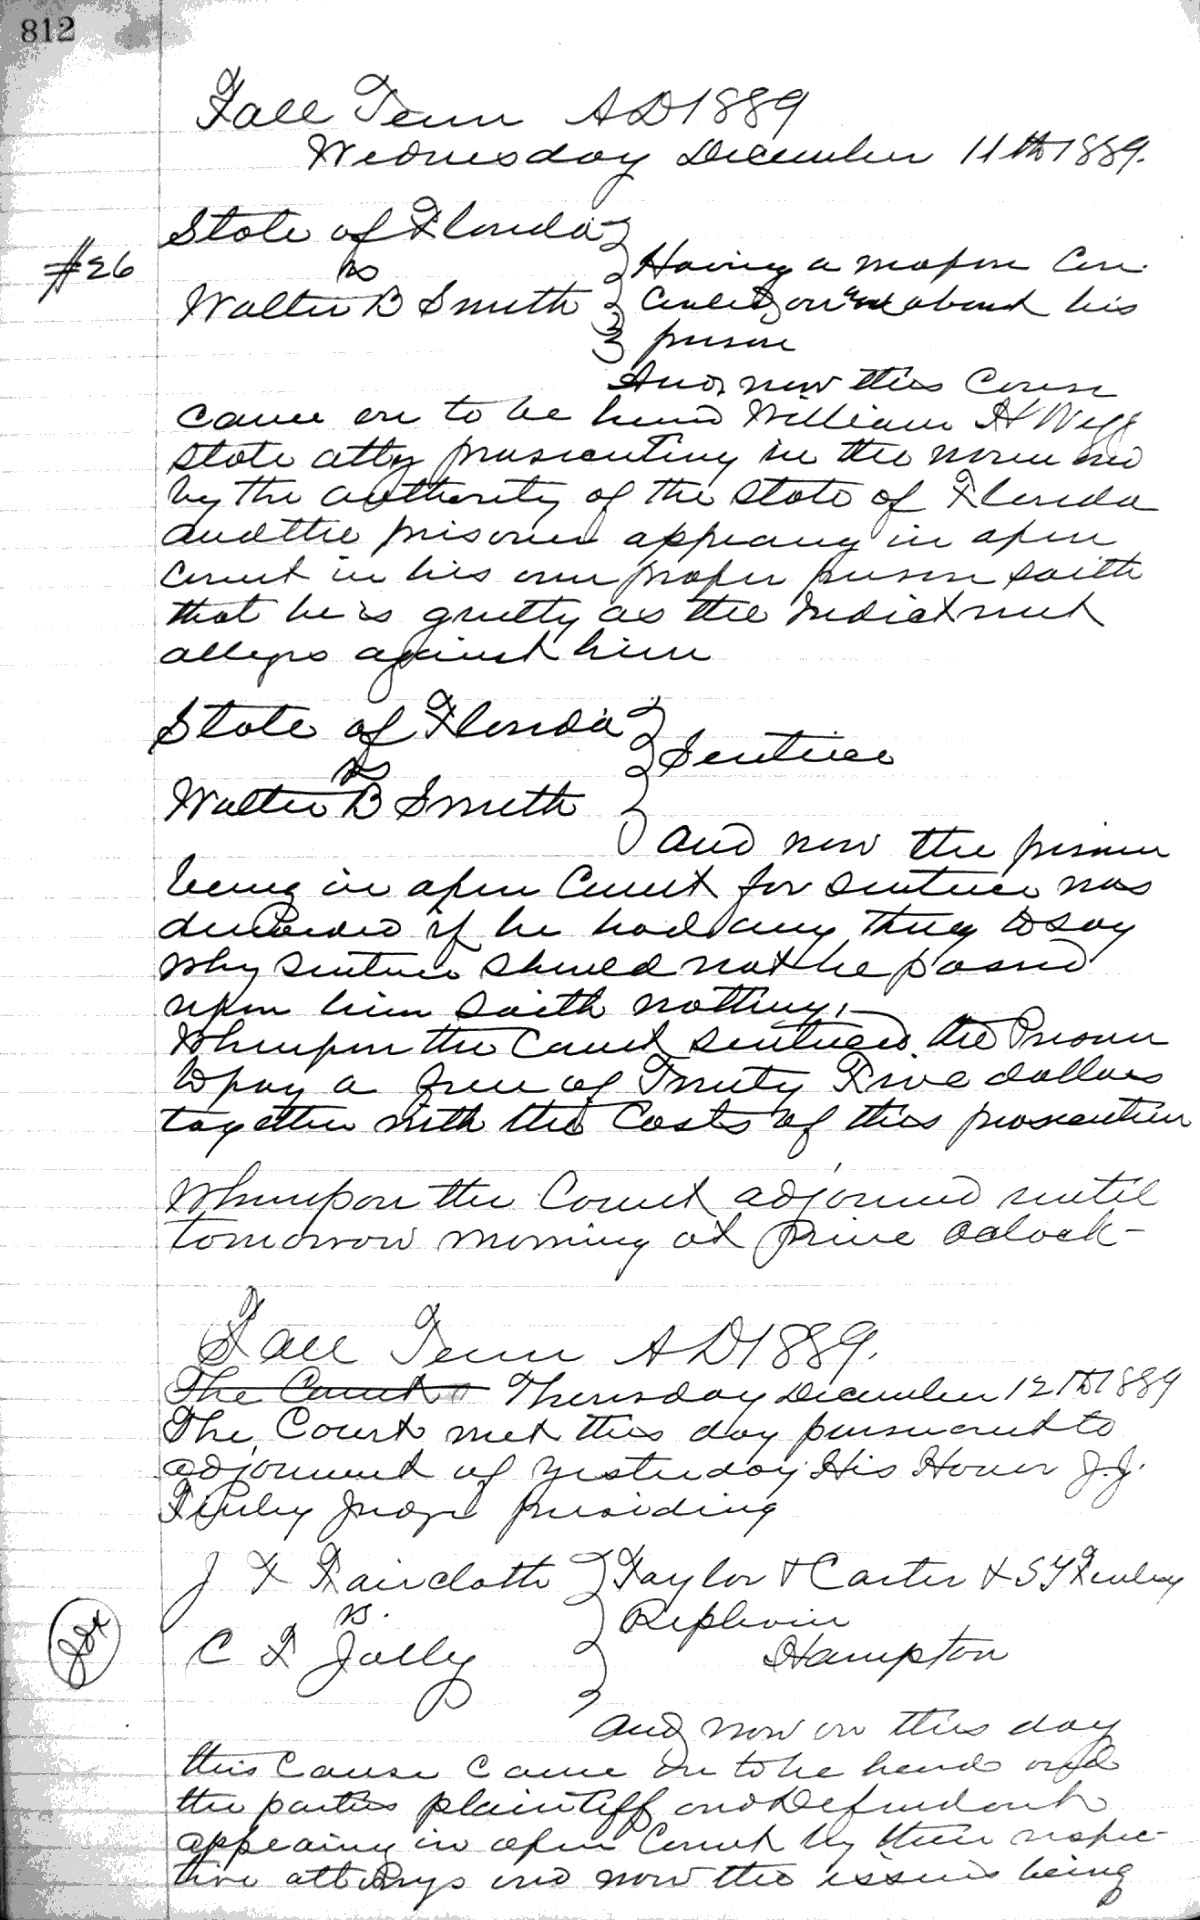 812
Fall Term AD 1889
Wednesday December 11th 1889.
State of Florida
#26
vs
Walter B Smith
Having a weapon con-
cealed on and about his
person
And now this Cause
came on to be heard William H Wigg
State atty prosecuting in the name and
by the authority of the State of Florida
and the prisoner appearing in open
Court in his own proper person saith
that he is guilty as the Indictment
alleges against him
State of Florida
vs
Walter B Smith
Sentence
And now the prisoner
being in open Court for sentence was
demanded if he had any thing to say
why sentence should not be passed
upon him saith nothing,
Whereupon the Court sentenced the Prisoner
to pay a fine of Twenty Five dollars
together with the Costs of this prosecution
Whereupon the Court adjourned until
tomorrow morning at nine oclock-
Fall Term AD 1889.
The Court Thursday December 12th 1889
The Court met this day pursuant to
adjournment of yesterday His Honor J.J.
Finley Judge presiding
J F Faircloth
vs.
C F Jolly
Taylor & Carter & S Y Finley
Replevin
Hampton
And now on this day
this Cause came on to be heard and
the parties plaintiff and Defendant
appearing in open Court by their respec-
tive attorneys and now the issues being